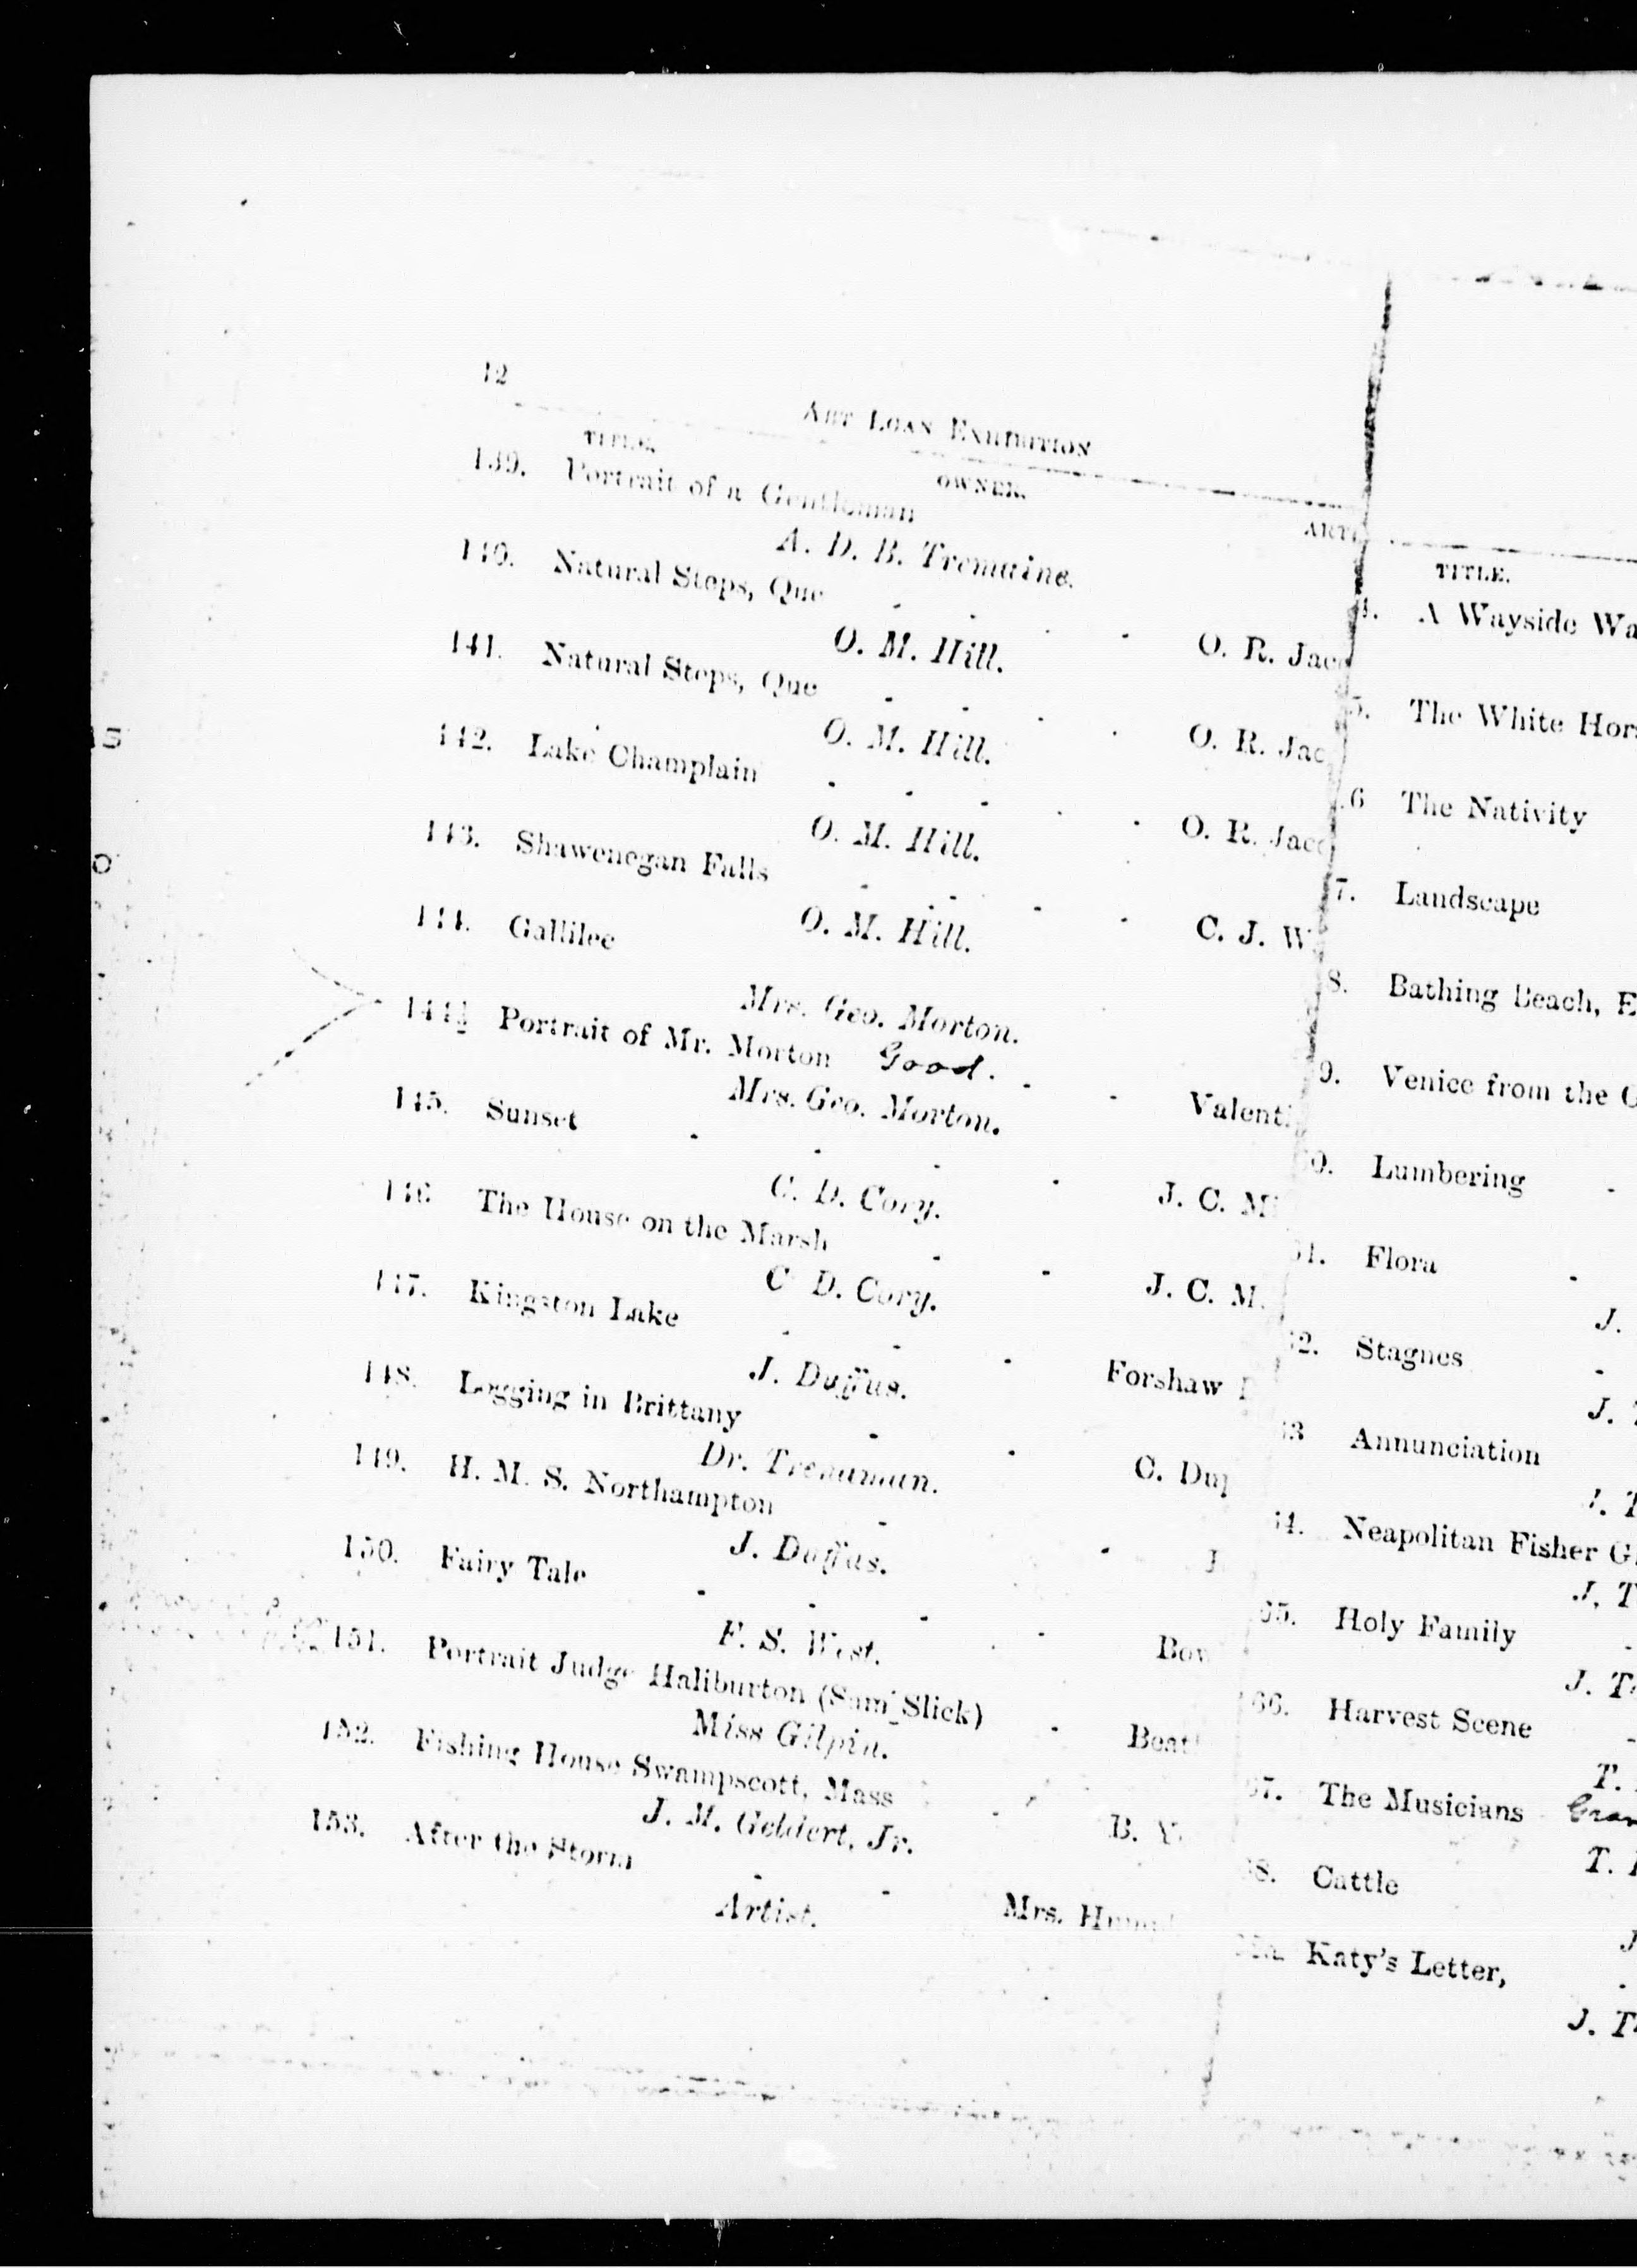 12
ART LOAN EXHIBITION
TITLE. OWNER. ARTI
139. Portrait of a Gentleman
A. D. B. Tremaine.
140. Natural Steps, Que - - - - O. R. Jac
O. M. Hill.
141. Natural Steps, Que - - - - O. R. Jac
O. M. Hill.
142. Lake Champlain - - - - - O. R. Jac
O. M. Hill.
143. Shawenegan Falls - - - - C. J. W
O. M. Hill.
144. Gallilee
Mrs. Geo. Morton.
144½ Portrait of Mr. Morton Good. - - Valent
Mrs. Geo. Morton.
145. Sunset - - - - J. C. M
C. D. Cory.
146. The House on the Marsh - - J. C. M.
C D. Cory.
147. Kingston Lake - - - Forshaw
J. Duffus.
148. Logging in Brittany - - C. Dup
Dr. Trenaman.
149. H. M. S. Northampton - -
J. Duffus.
150. Fairy Tale - - - - Bow
F. S. West.
151. Portrait Judge Haliburton (Sam Slick) - Beat
Miss Gilpin.
152. Fishing House Swampscott, Mass - B. Y.
J. M. Geldert, Jr.
153. After the Storm - - Mrs. H
Artist.
TITLE.
4. A Wayside Wa
5. The White Hors
6 The Nativity
7. Landscape
8. Bathing Beach, E
9. Venice from the G
0. Lumbering -
61. Flora -
J.
62. Stagnes -
J. T
63 Annunciation
J. T
64. Neapolitan Fisher G
J. T
65. Holy Family -
J. T
166. Harvest Scene -
T.
67. The Musicians
T.
8. Cattle
J
Katy's Letter, -
J. T